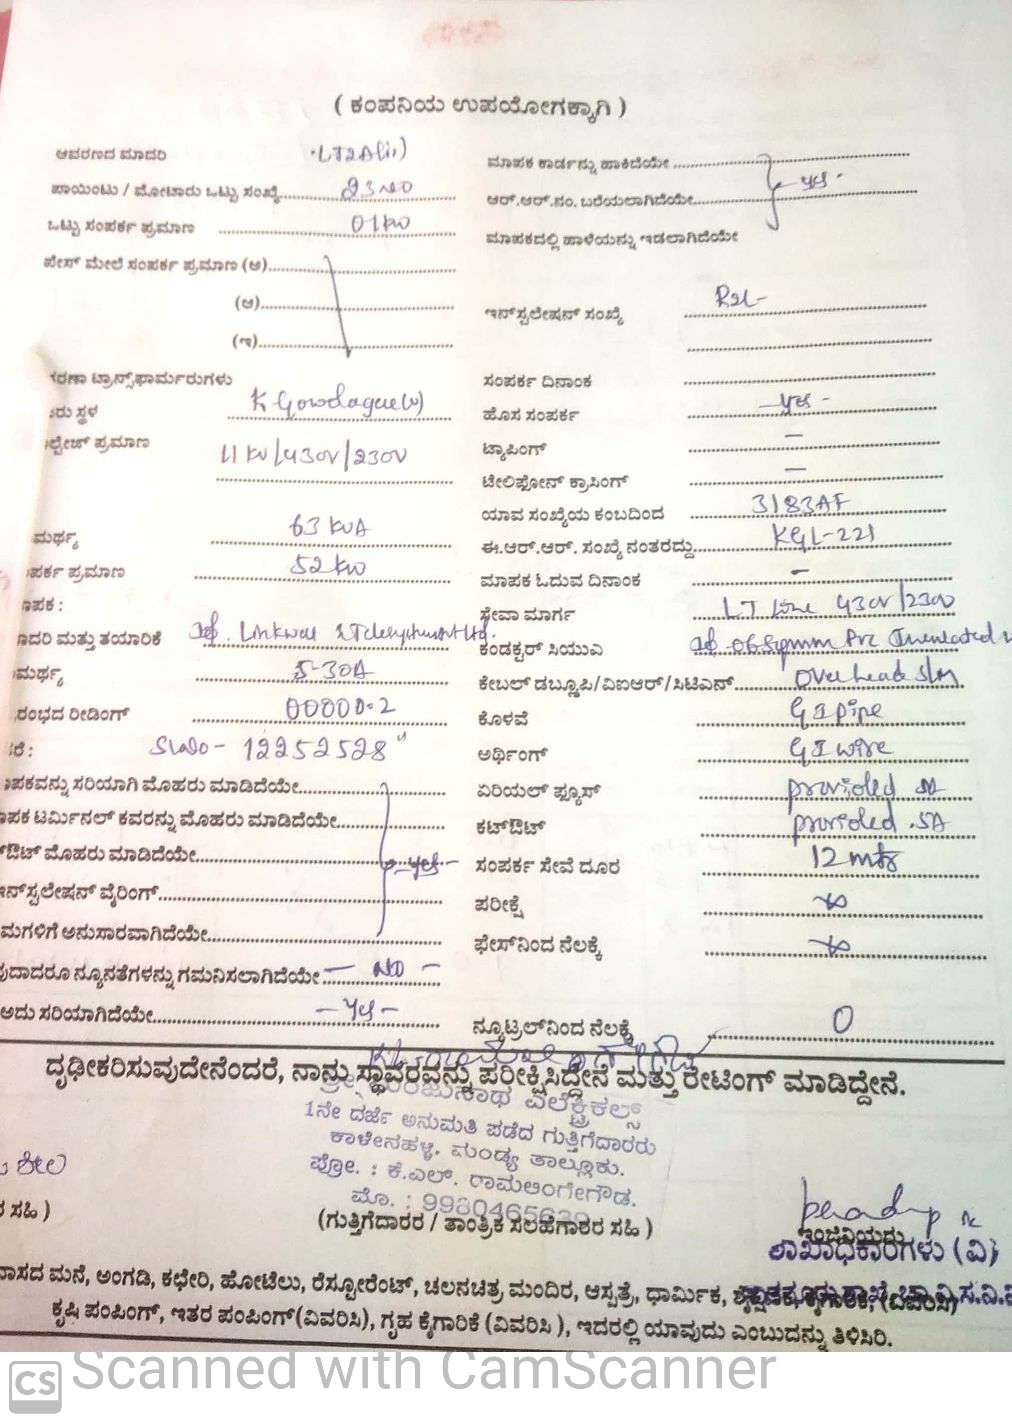 ( ಕಂಪನಿಯ ಉಪಯೋಗಕ್ಕಾಗಿ )
ಆವರಣದ ಮಾದರಿ LT2A(ii)
ಪಾಯಿಂಟು / ಮೋಟಾರು ಒಟ್ಟು ಸಂಖ್ಯೆ
ಒಟ್ಟು ಸಂಪರ್ಕ ಪ್ರಮಾಣ 01kw
ಪೇಸ್ ಮೇಲೆ ಸಂಪರ್ಕ ಪ್ರಮಾಣ (ಅ)
(ಆ)
(ಇ)
ಕರಣಾ ಟ್ರಾನ್ಸ್‌ಫಾರ್ಮರುಗಳು
ರು ಸ್ಥಳ
ಲ್ಟೇಜ್ ಪ್ರಮಾಣ 11 kv/430v/230v
ಮರ್ಥ್ಯ 63 kvA
ಪರ್ಕ ಪ್ರಮಾಣ 52kw
ಾಪಕ :
ಾದರಿ ಮತ್ತು ತಯಾರಿಕೆ
ಮರ್ಥ್ಯ 5-30A
ರಂಭದ ರೀಡಿಂಗ್ 00000.2
ರೆ : Slno - 12252528
ಾಪಕವನ್ನು ಸರಿಯಾಗಿ ಮೊಹರು ಮಾಡಿದೆಯೇ
ಾಪಕ ಟರ್ಮಿನಲ್ ಕವರನ್ನು ಮೊಹರು ಮಾಡಿದೆಯೇ
ಔಟ್ ಮೊಹರು ಮಾಡಿದೆಯೇ yes
ಇನ್‌ಸ್ಟಲೇಷನ್ ವೈರಿಂಗ್
ಮಗಳಿಗೆ ಅನುಸಾರವಾಗಿದೆಯೇ
ುದಾದರೂ ನ್ಯೂನತೆಗಳನ್ನು ಗಮನಿಸಲಾಗಿದೆಯೇ - NO -
ಅದು ಸರಿಯಾಗಿದೆಯೇ - yes -
ಮಾಪಕ ಕಾರ್ಡನ್ನು ಹಾಕಿದೆಯೇ
ಆರ್.ಆರ್.ನಂ. ಬರೆಯಲಾಗಿದೆಯೇ yes
ಮಾಪಕದಲ್ಲಿ ಹಾಳೆಯನ್ನು ಇಡಲಾಗಿದೆಯೇ
ಇನ್‌ಸ್ಟಲೇಷನ್ ಸಂಖ್ಯೆ
ಸಂಪರ್ಕ ದಿನಾಂಕ
ಹೊಸ ಸಂಪರ್ಕ - yes -
ಟ್ಯಾಪಿಂಗ್ -
ಟೇಲಿಫೋನ್ ಕ್ರಾಸಿಂಗ್ -
ಯಾವ ಸಂಖ್ಯೆಯ ಕಂಬದಿಂದ 3183AF
ಈ.ಆರ್.ಆರ್. ಸಂಖ್ಯೆ ನಂತರದ್ದು KGL-221
ಮಾಪಕ ಓದುವ ದಿನಾಂಕ -
ಸೇವಾ ಮಾರ್ಗ LT Line 430v/230v
ಕಂಡಕ್ಟರ್ ಸಿಯುಎ
ಕೇಬಲ್ ಡಬ್ಲೂಪಿ/ವಿಐಆರ್/ಸಿಟಿಎನ್
ಕೊಳವೆ GI pipe
ಅರ್ಥಿಂಗ್ GI wire
ಏರಿಯಲ್ ಫ್ಯೂಸ್ provided
ಕಟ್‌ಔಟ್ provided .5A
ಸಂಪರ್ಕ ಸೇವೆ ದೂರ 12 mts
ಪರೀಕ್ಷೆ
ಫೇಸ್‌ನಿಂದ ನೆಲಕ್ಕೆ
ನ್ಯೂಟ್ರಲ್‌ನಿಂದ ನೆಲಕ್ಕೆ 0
ದೃಢೀಕರಿಸುವುದೇನೆಂದರೆ, ನಾನು ಸ್ಥಾವರವನ್ನು ಪರೀಕ್ಷಿಸಿದ್ದೇನೆ ಮತ್ತು ರೇಟಿಂಗ್ ಮಾಡಿದ್ದೇನೆ.
ಮಂಜುನಾಥ ಎಲೆಕ್ಟ್ರಿಕಲ್ಸ್
1ನೇ ದರ್ಜೆ ಅನುಮತಿ ಪಡೆದ ಗುತ್ತಿಗೆದಾರರು
ಕಾಳೇನಹಳ್ಳಿ, ಮಂಡ್ಯ ತಾಲ್ಲೂಕು.
ಪ್ರೋ. : ಕೆ.ಎಲ್. ರಾಮಲಿಂಗೇಗೌಡ.
ಮೊ. :
ರ ಸಹಿ )
(ಗುತ್ತಿಗೆದಾರರ / ತಾಂತ್ರಿಕ ಸಲಹೆಗಾರರ ಸಹಿ )
ಇಂಜಿನಿಯರು
ಶಾಖಾಧಿಕಾರಿಗಳು (ವಿ)
ವಾಸದ ಮನೆ, ಅಂಗಡಿ, ಕಛೇರಿ, ಹೋಟೆಲು, ರೆಸ್ಟೋರೆಂಟ್, ಚಲನಚಿತ್ರ ಮಂದಿರ, ಆಸ್ಪತ್ರೆ, ಧಾರ್ಮಿಕ,
ಕೃಷಿ ಪಂಪಿಂಗ್, ಇತರ ಪಂಪಿಂಗ್(ವಿವರಿಸಿ), ಗೃಹ ಕೈಗಾರಿಕೆ (ವಿವರಿಸಿ ), ಇದರಲ್ಲಿ ಯಾವುದು ಎಂಬುದನ್ನು ತಿಳಿಸಿರಿ.
CS Scanned with CamScanner